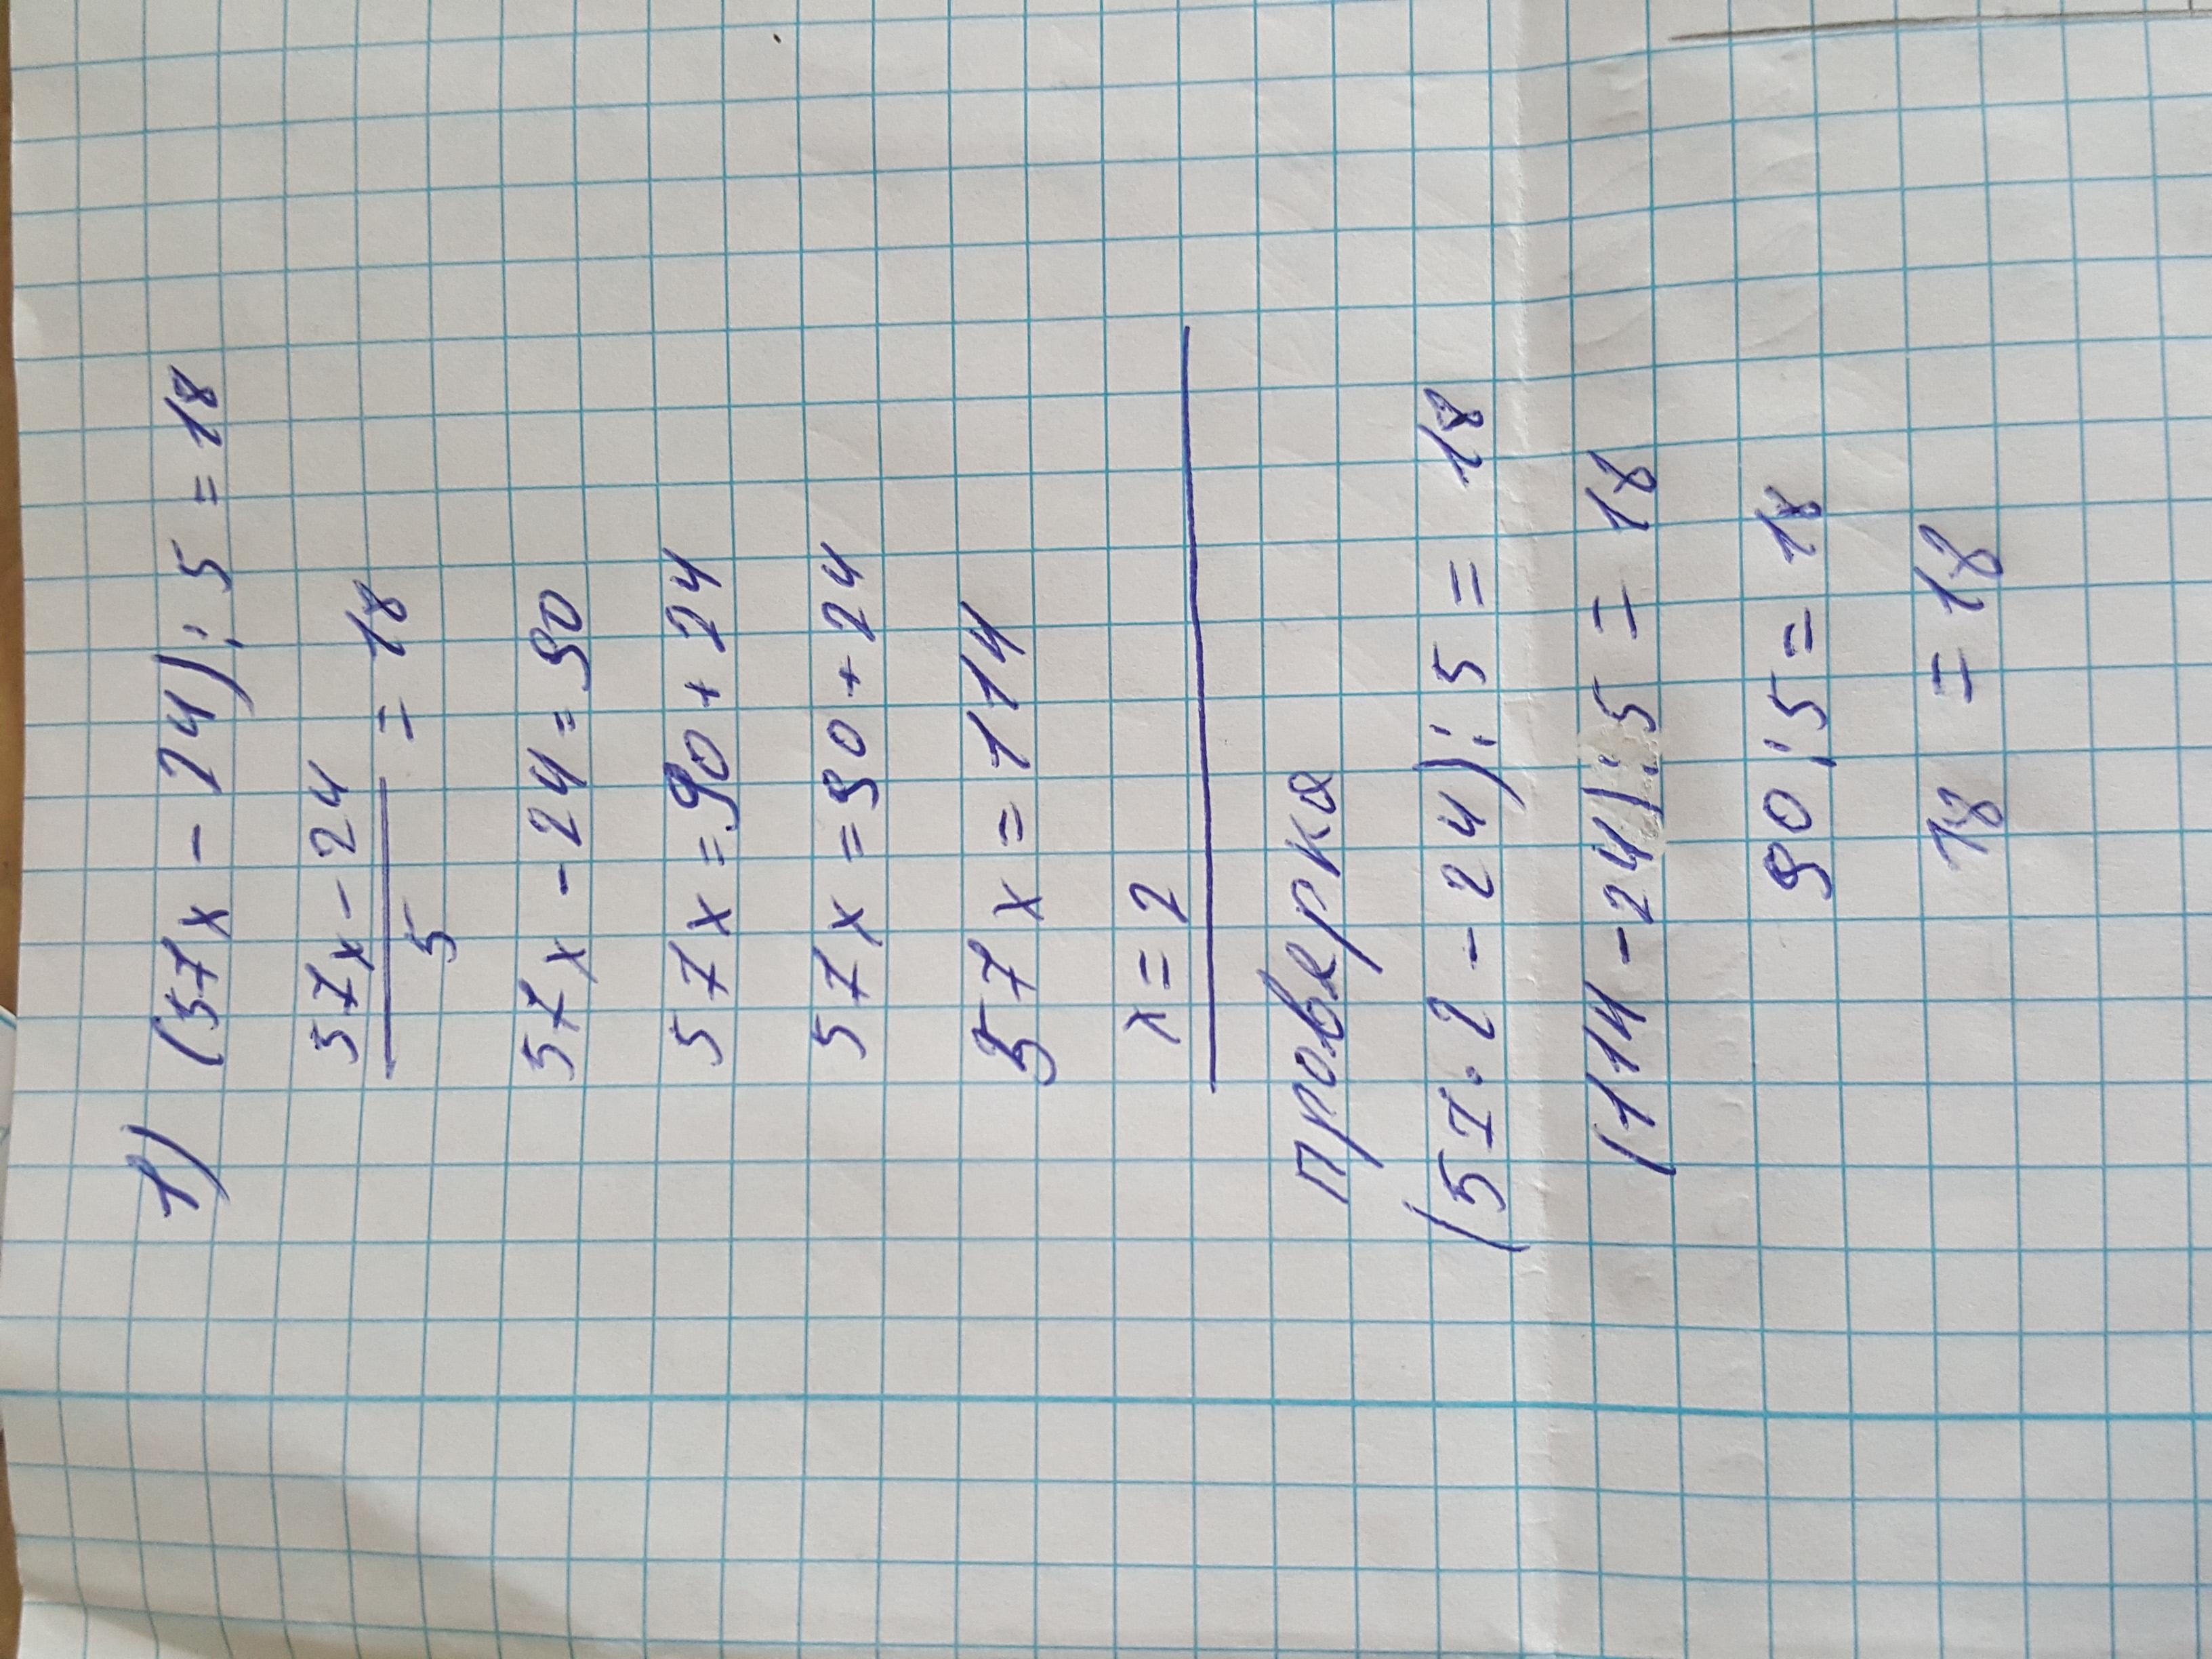 1) (57x - 24) : 5 = 18
57x - 24
= 18
5
57x - 24 = 90
57x = 90 + 24
57x = 90 + 24
57x = 114
x = 2
проверка
(57 · 2 - 24) : 5 = 18
(114 - 24) : 5 = 18
90 : 5 = 18
18 = 18